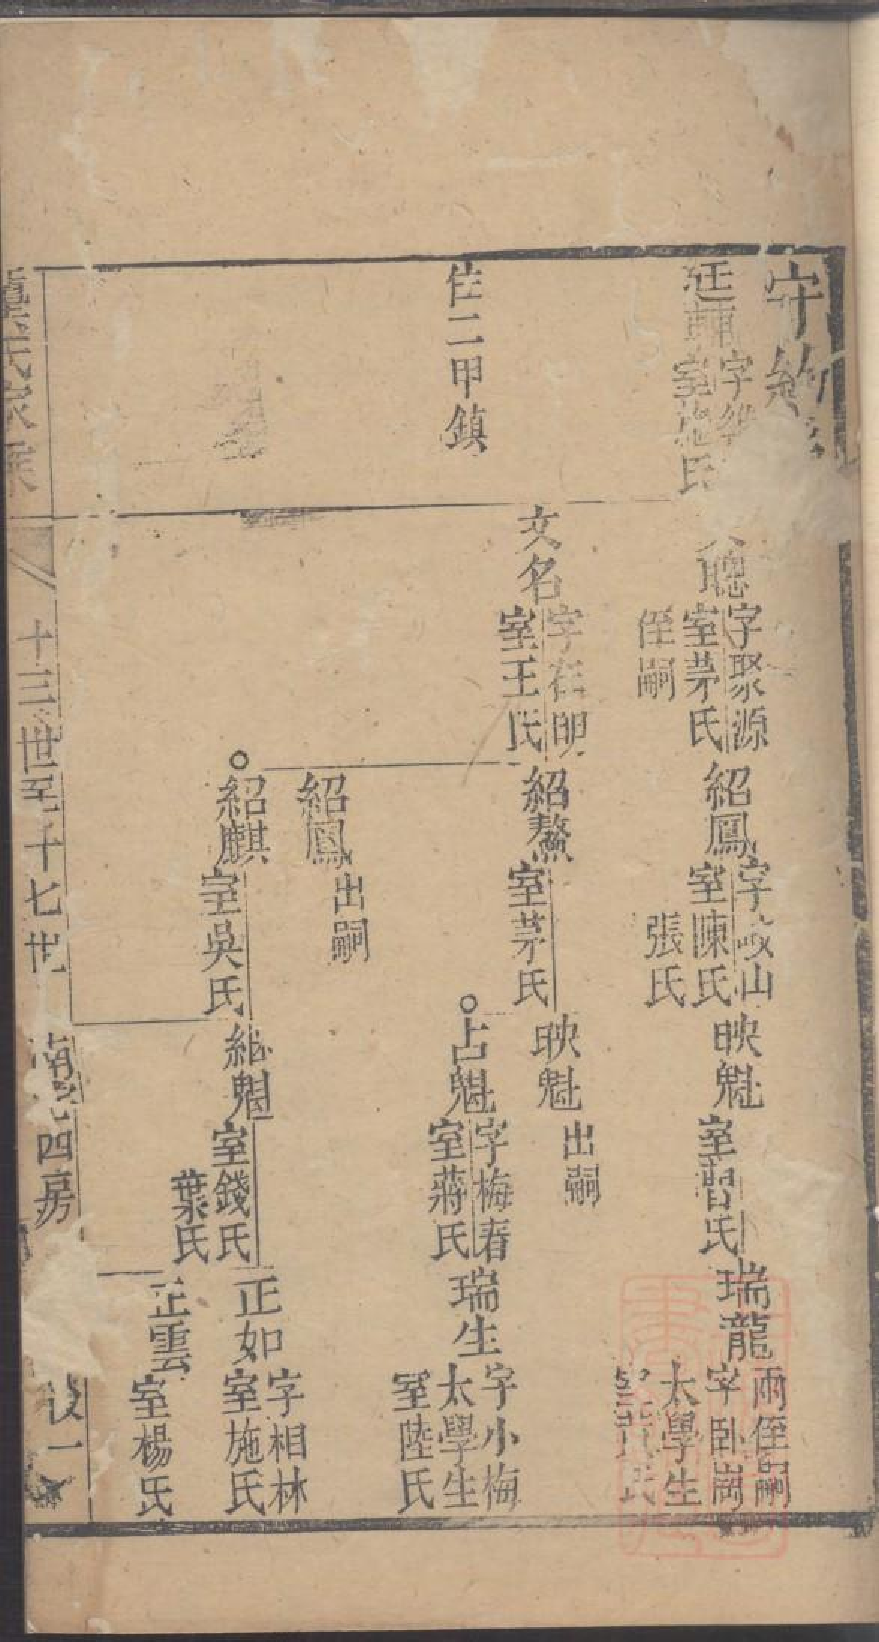 守約
廷輔
室施氏
住二甲鎮
聰
字聚源
室茅氏
侄嗣
文名
字在明
室王氏
紹鳳
字岐山
室陳氏
張氏
紹鰲
室茅氏
紹鳳
出嗣
紹麒
室吳氏
映魁
室曹氏
映魁
出嗣
占魁
字梅春
室蔣氏
繼魁
室錢氏
葉氏
瑞龍
兩侄嗣
字卧崗
太學生
瑞生
字小梅
太學生
室陸氏
正如
字相林
室施氏
正雲
室楊氏
十三世至十七世
四房